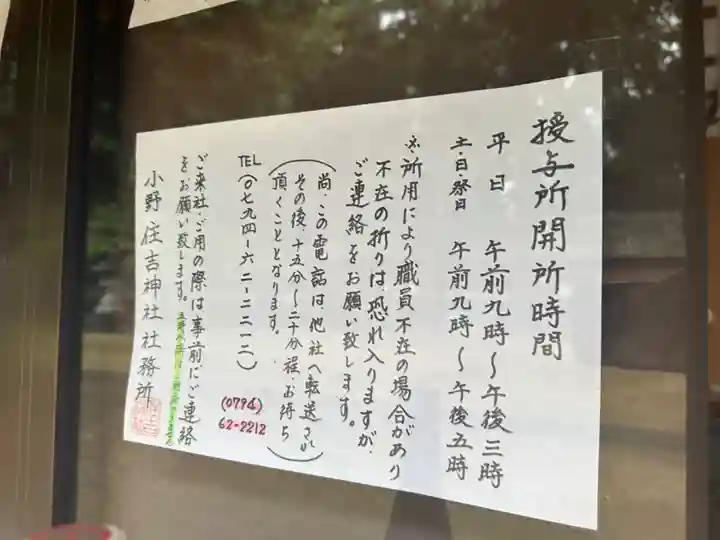 授与所開所時間
平日 午前九時〜午後三時
土・日・祭日 午前九時〜午後五時
※所用により職員不在の場合があり
不在の折りは、恐れ入りますが、
ご連絡をお願い致します。
(尚、この電話は、他社へ転送され
その後、十五分〜二十分程、お待ち
頂くこととなります。)
TEL(〇七九四-六二-二二一二)
(0794)
62-2212
ご来社、ご用の際は事前にご連絡
をお願い致します。
小野住吉神社社務所